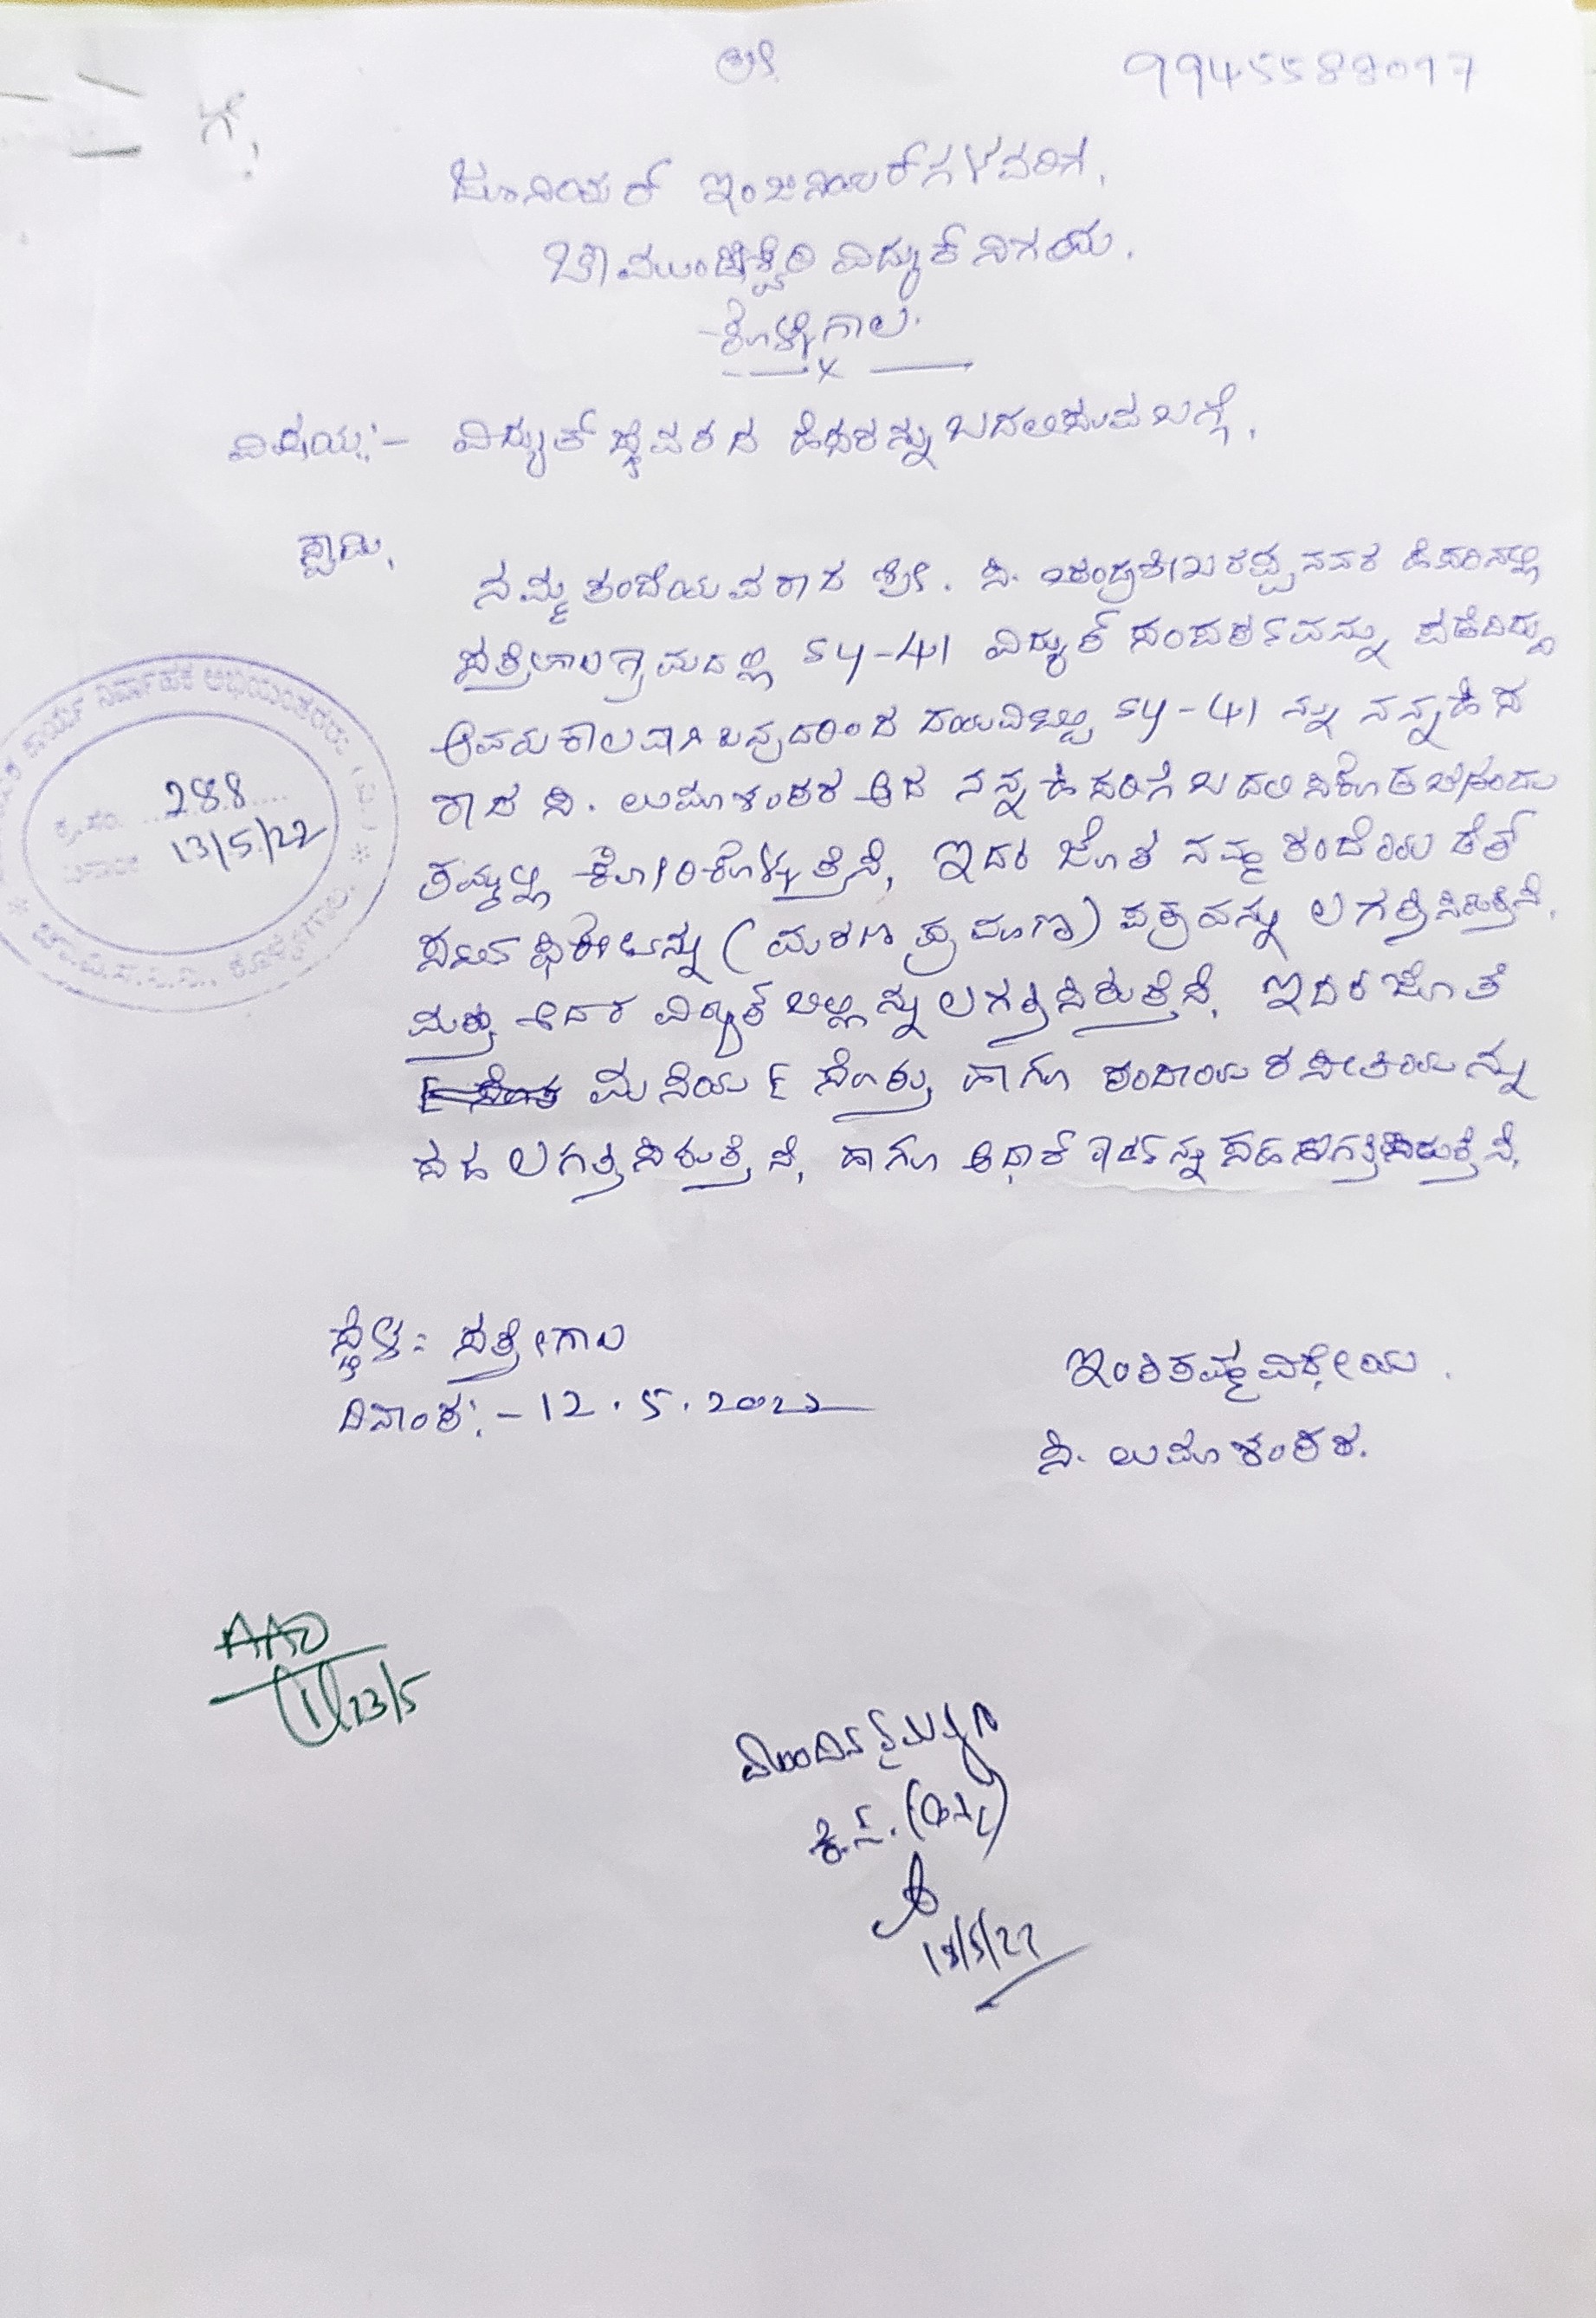 ಶ್ರೀ
9945588017
ಗೆ,
ಜೂನಿಯರ್ ಇಂಜಿನಿಯರ್‌ಗಳವರಿಗೆ,
ಚಾಮುಂಡೇಶ್ವರಿ ವಿದ್ಯುತ್ ನಿಗಮ.
ಕೊಳ್ಳೇಗಾಲ.
ವಿಷಯ:- ವಿದ್ಯುತ್ ಸ್ಥಾವರದ ಹೆಸರನ್ನು ಬದಲಿಸುವ ಬಗ್ಗೆ,
ಸ್ವಾಮಿ,
ನಮ್ಮ ತಂದೆಯವರಾದ ಶ್ರೀ. ಸಿ. ಚಂದ್ರಶೇಖರಪ್ಪನವರ ಹೆಸರಿನಲ್ಲಿ
ಸತ್ತೇಗಾಲ ಗ್ರಾಮದಲ್ಲಿ SY-41 ವಿದ್ಯುತ್ ಸಂಪರ್ಕವನ್ನು ಪಡೆದಿದ್ದು
ಅವರು ಕಾಲವಾಗಿ ದಯವಿಟ್ಟು SY-41 ನ್ನು ನನ್ನ ಹೆಸ
ರಾದ ಸಿ. ಉಮಾಶಂಕರ ಆದ ನನ್ನ ಹೆಸರಿಗೆ ಬದಲಿಸಿಕೊಡಬೇಕೆಂದು
ತಮ್ಮಲ್ಲಿ ಕೋರಿಕೊಳ್ಳುತ್ತೆನೆ, ಇದರ ಜೊತೆ ನಮ್ಮ ತಂದೆಯ ಡೆತ್
(ಮರಣ ಪ್ರಮಾಣ) ಪತ್ರವನ್ನು ಲಗತ್ತಿಸಿರುತ್ತೆನೆ,
ಮತ್ತು ವಿದ್ಯುತ್ ಬಿಲ್ಲನ್ನು ಲಗತ್ತಿಸಿರುತ್ತೆನೆ, ಇದರ ಜೊತೆ
ಮನೆಯ E ಸ್ವೊತ್ತು ಹಾಗೂ ಕಂದಾಯ ರಸೀತಿಯನ್ನು
ಸಹ ಲಗತ್ತಿಸಿರುತ್ತೆನೆ, ಹಾಗೂ ಆಧಾರ್ ಕಾರ್ಡನ್ನು ಸಹ ಲಗತ್ತಿಸಿರುತ್ತೆನೆ,
ಕಾರ್ಯ ನಿರ್ವಾಹಕ ಅಭಿಯಂತರರು (ವಿ.)
ಕ್ರ.ಸಂ. 288
ದಿನಾಂಕ 13/5/22
ಚಾ.ವಿ.ಸ.ನಿ.ನಿ., ಕೊಳ್ಳೇಗಾಲ.
ಸ್ಥಳ:- ಸತ್ತೇಗಾಲ
ದಿನಾಂಕ:- 12.5.2022
ಇಂತಿ ತಮ್ಮ ವಿಶ್ವಾಸಿಯ.
ಸಿ. ಉಮಾಶಂಕರ.
AAO
13/5